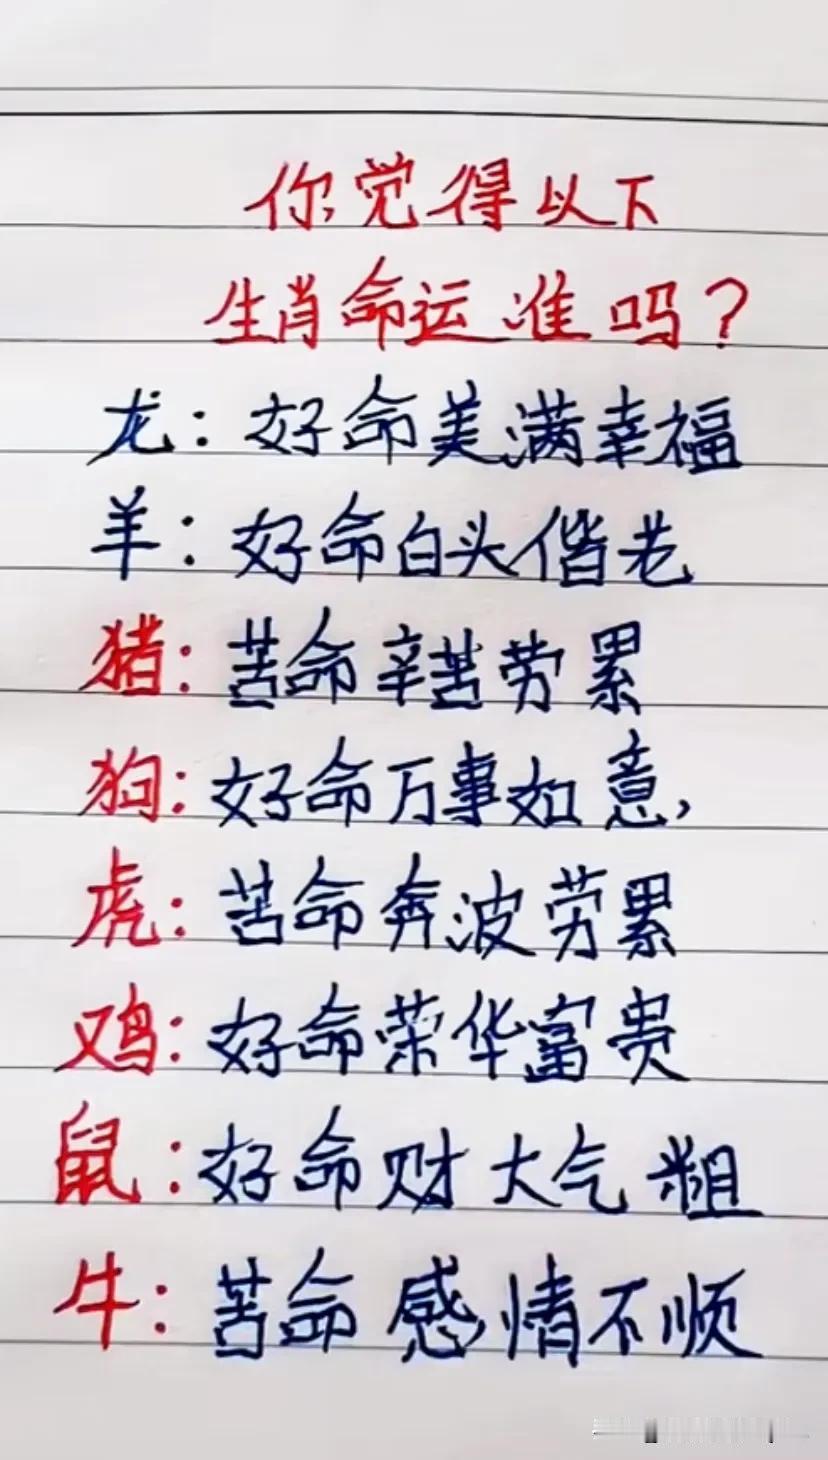 你觉得以下
生肖命运准吗?
龙:好命美满幸福
羊:好命白头偕老
猪:苦命辛苦劳累
狗:好命万事如意,
虎:苦命奔波劳累
鸡:好命荣华富贵
鼠:好命财大气粗
牛:苦命感情不顺